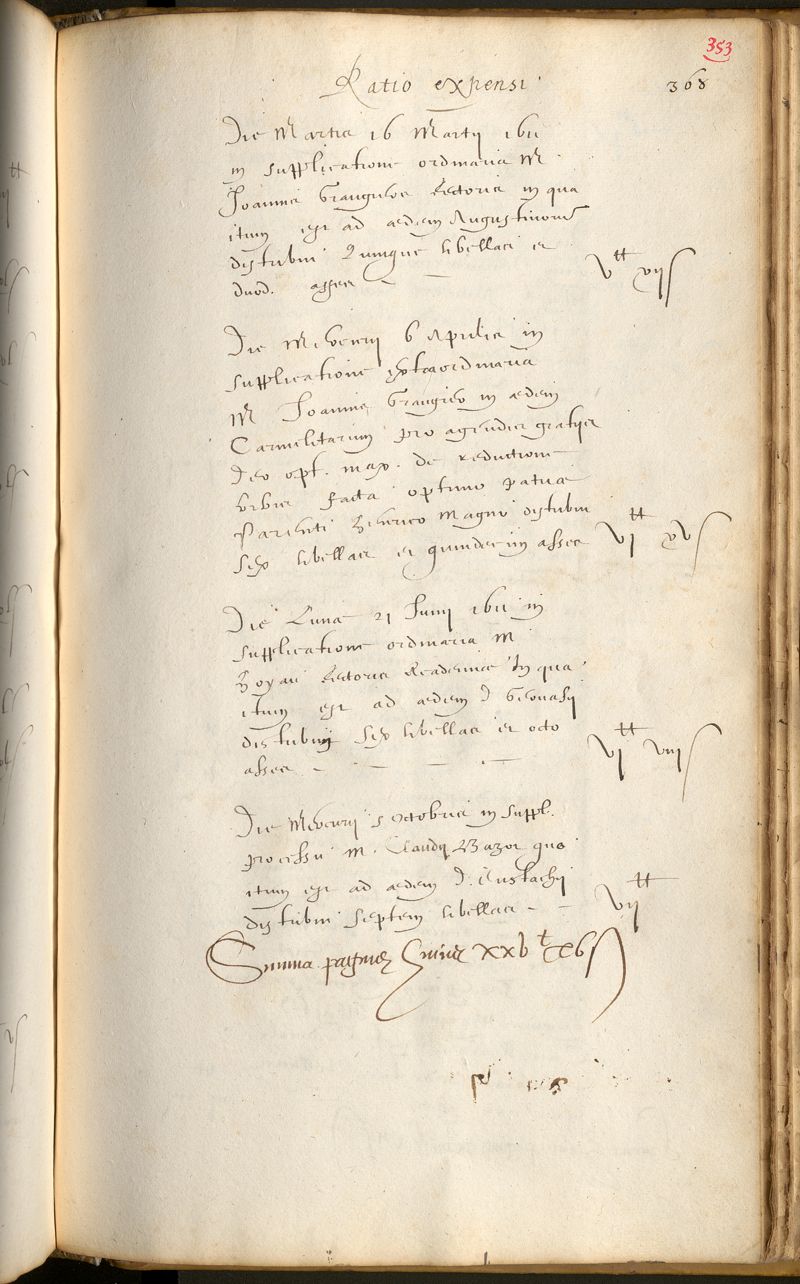 353
Ratio expensi
368
Die Martis 16 Martij 1611
in supplicatione ordinaria M.
Joannis Grangier Rectoris in qua
itum est ad aedem Augustinorum
distribui quinque libellas et
duod. asses – –
V tt xijs
Die Mercurij 6 Aprilis in
supplicatione extraordinaria
M Joannis Grangier in aedem
Carmelitarum pro agendis gratijs
Deo opt. max. de reductione
urbis facta optimo patriae
Parenti Henrico Magno distribui
sex libellas et quindecim asses
VI tt xVs
Die Lunae 21 Junij 1611 in
supplicatione ordinaria M
Rectoris Academiae In qua
itum est ad aedem D Gervasij
distribui sex libellas et octo
asses – – – –
VI tt Viijs
Die Mercurij 5 Octobris in suppl.
M. Claudij Bazot qua
itum est ad aedem D. Eustachij
distribui septem libellas – –
Vij tt
Summa paginae huius xxv t xvs